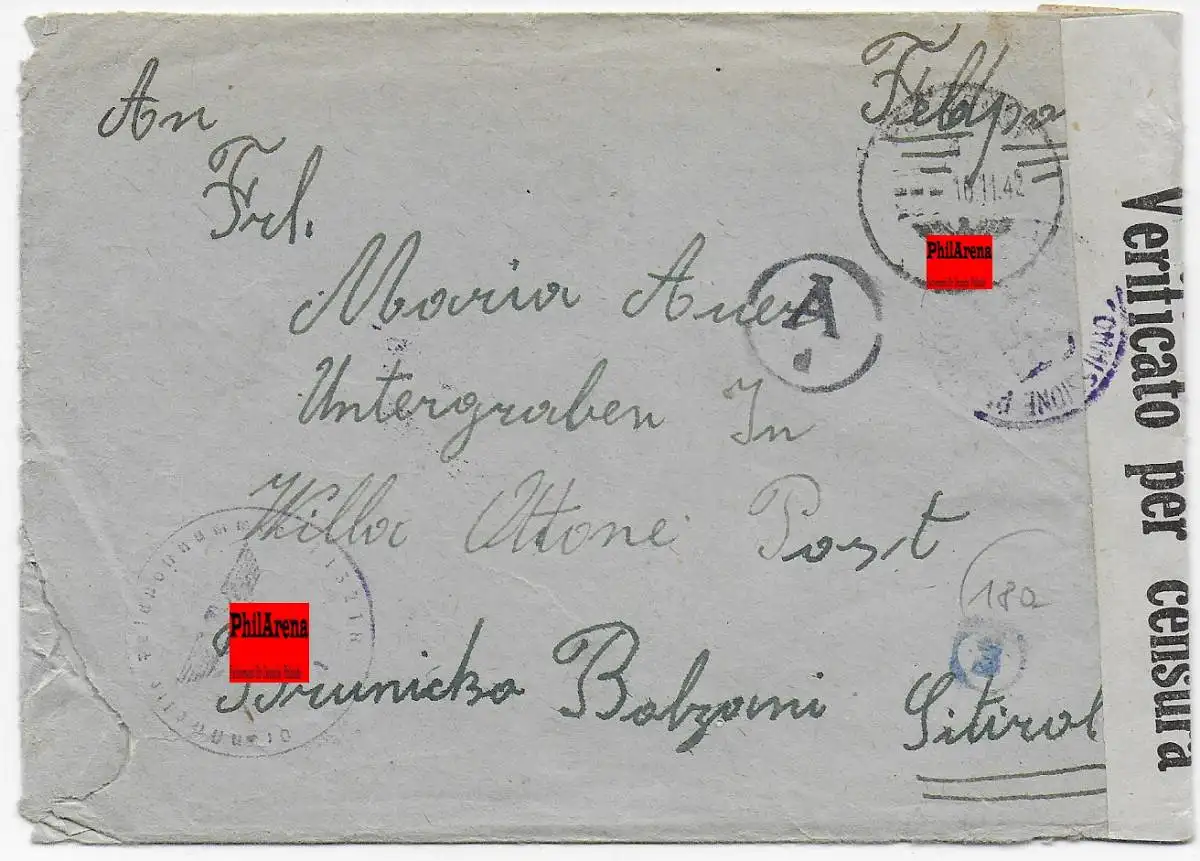 An
Feldpo
Frl.
16.11.42
PhilArena
Maria Auer
A
d
Untergraben In
Willa Ottone Post
182
PhilArena
Brunicko Bolzani Sitirol
Verificato per censura